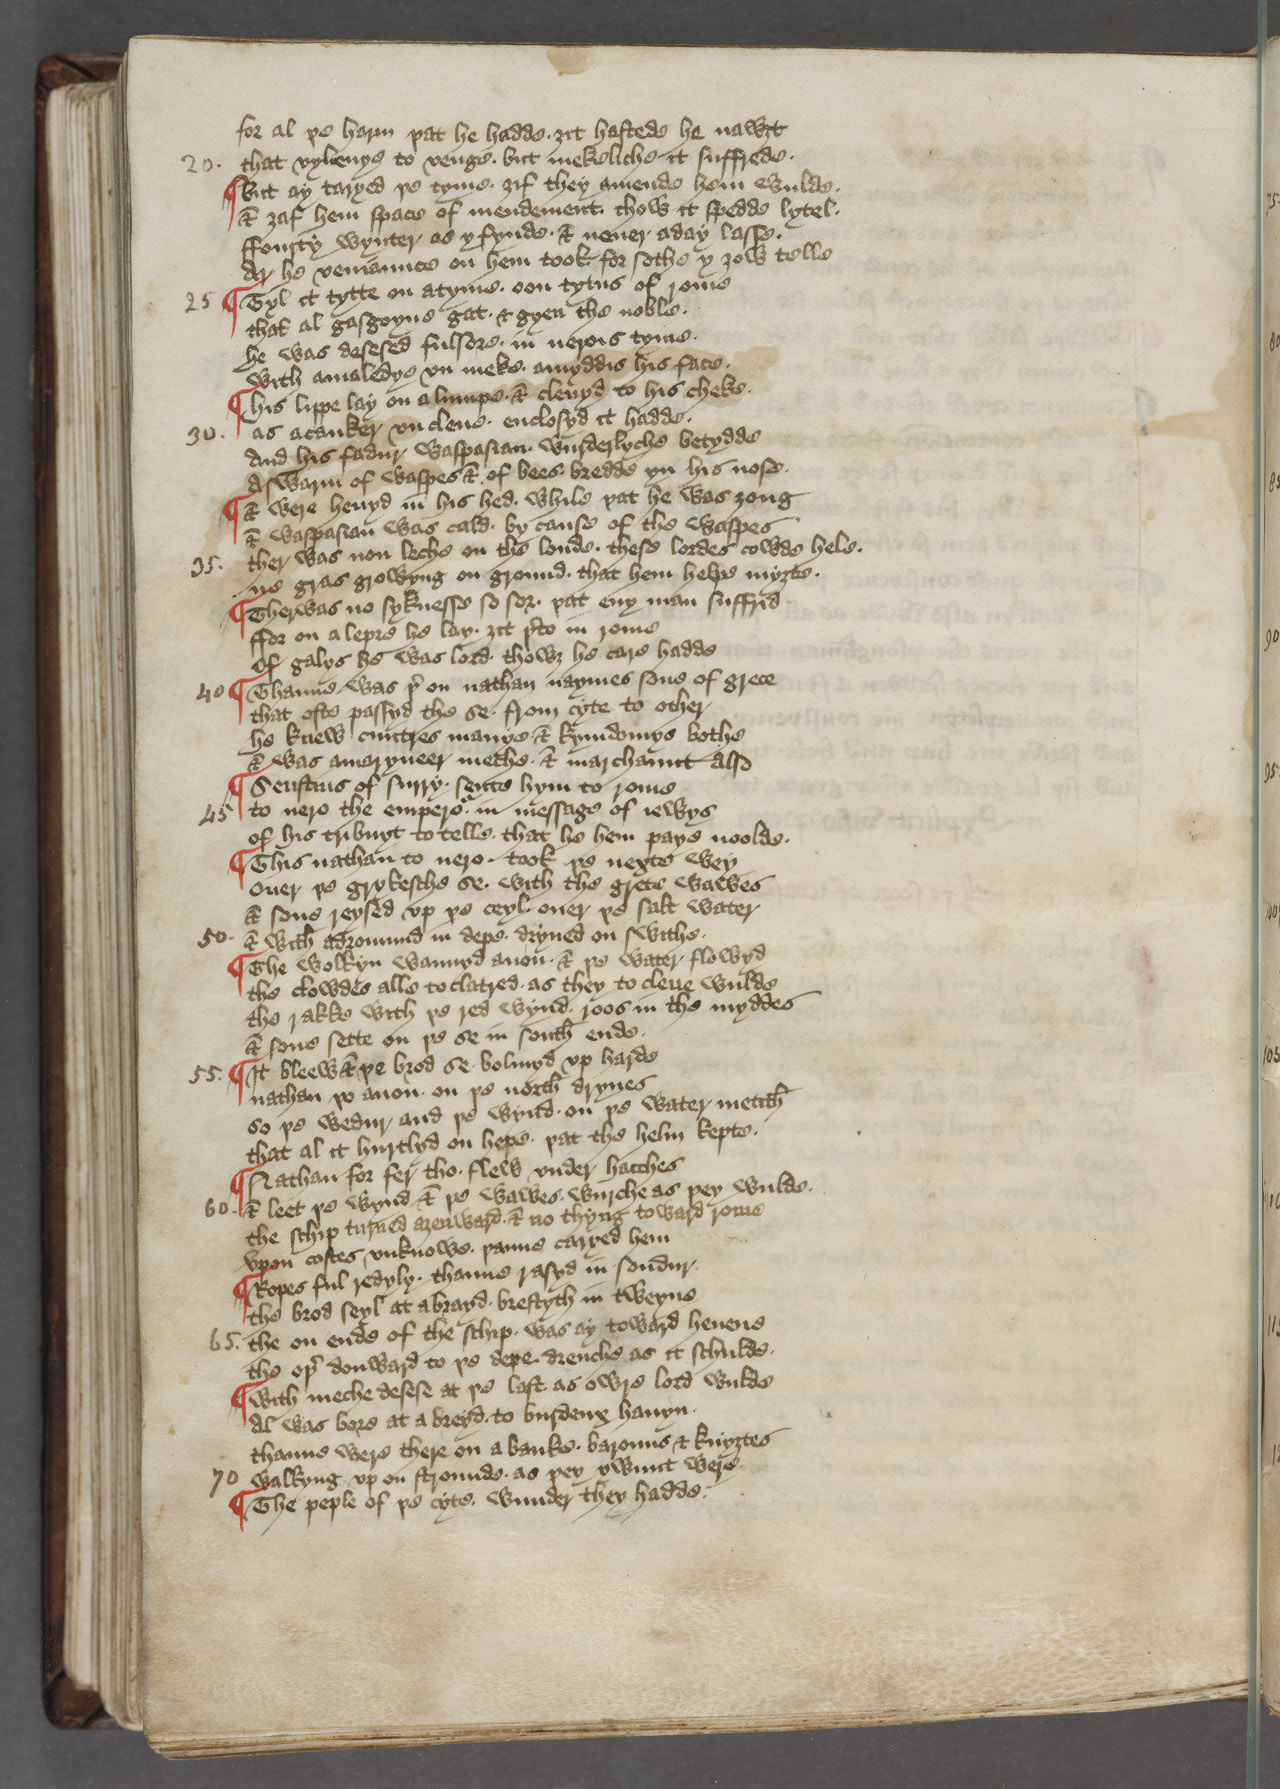 for al þe harm þat he hadde. ȝit hastede he nawȝt
20. that vylenye to venge. but mekeliche it suffrede.
¶ But ay taryed þe tyme. ȝif they amende hem wulde.
& ȝaf hem space of mendement. thow it spedde lytel.
ffourty wynter as y fynde. & neuer a day lasse.
Ar he veniaunce on hem took. for sothe y ȝow telle
25 ¶ Tyl it tytte on a tyme. oon tytus of rome
that al gasgoyne gat. & gyen the noble.
he was desesed ful sore. in nerois tyme.
with a maledye vn meke. amyddis his face.
¶ his lippe lay on a lumpe. & cleuyd to his cheke.
30. as a canker vnclene. enclosyd it hadde.
And his fadur waspasian. wurderlyche betydde
A swarm of waspes & of bees. bredde yn his nose.
¶ & were heuyd in his hed. while þat he was ȝong
& waspasian was cald. by cause of the waspes
35. ther was non leche on the londe. these lordes cowde hele.
ne gras growyng on ground. that hem helpe myȝte.
¶ Ther was no syknesse so sor. þat eny man suffrid
ffor on a lepre he lay. ȝit þ̉to in rome
Of galys he was lord. thowȝ he care hadde
40 ¶ Thanne was þ̉ on nathan naymes sone of grece
that ofte passyd the se. from cyte to other
he knew cuntres manye. & kyndomys bothe
& was a maryneer meche. & marchaunt also
¶ Sensteus of surry. sente hym to rome
45 to nero the emperoᵘ. in message of iewys
of his tribuyt to telle. that he hem paye noolde.
¶ This nathan to nero. took þe nexte wey
ouer þe grykesche se. with the grete wawes
& sone reysed vp þe ceyl. ouer þe salt water
50. & with a dromund in depe. dryued on swithe.
¶ The wolkyn wannyd anon. & þe water flowyd
the clowdes alle to clatred. as they to cleue wulde
the rakke with þe red wynd. roos in the myddes
& sone sette on þe se in south ende.
55. ¶ It bleew & þe brod se. bolnyd vp harde
nathan þo anon. on þe north dryues
so þe wedur and þe wynd. on þe water metith
that al it hurtlyd on hepe. þat the helm kepte.
¶ Nathan for fer tho. flew vnder hacches
60. & leet þe wynd & þe wawes. wurche as þey wulde.
the schip turned aȝenward. & no thyng toward rome
vpon costes vnknowe. þanne caryed hem
¶ Ropes ful redyly. thanne rasyd in sondur.
the brod seyl at abrayd. brestyth in tweyne
65. the on ende of the schip. was ay toward heuene
the oþ̉ donward to þe depe. drenche as it schulde.
¶ with meche desese at þe last. as owre lord wulde
Al was bore at a breyd. to burdeux hauyn.
thanne were there on a banke. barouns & knyȝtes
70 walkyng vp on stronde. as þey ywunt were.
¶ The peple of þe cyte. wunder they hadde.
75.
80
85
90
95.
100
105
110
115